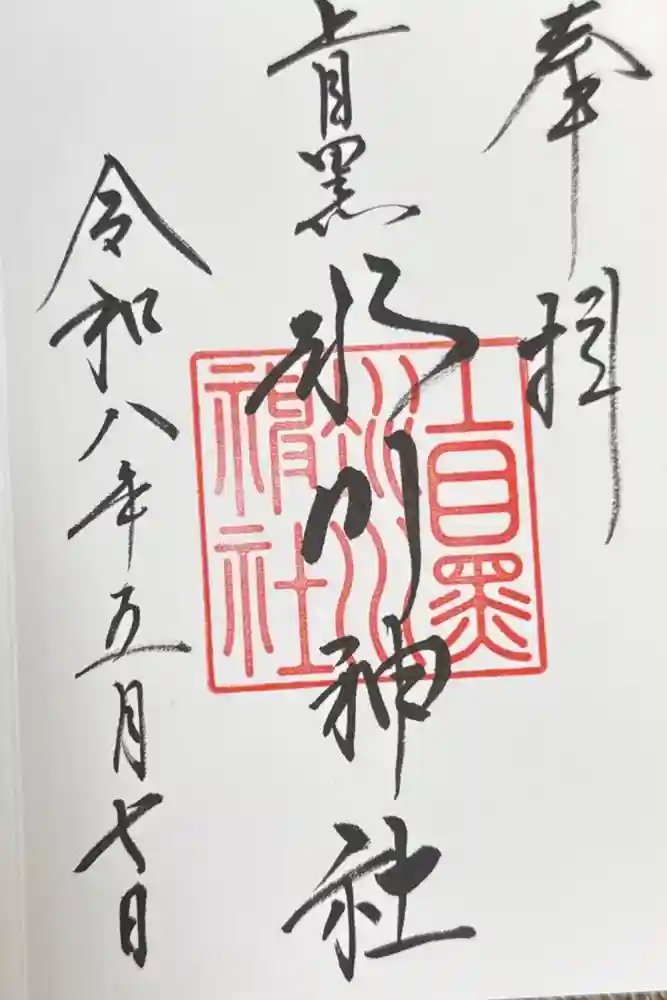 奉拝
上目黒
氷川神社
上目黒
氷川
神社
令和八年五月七日